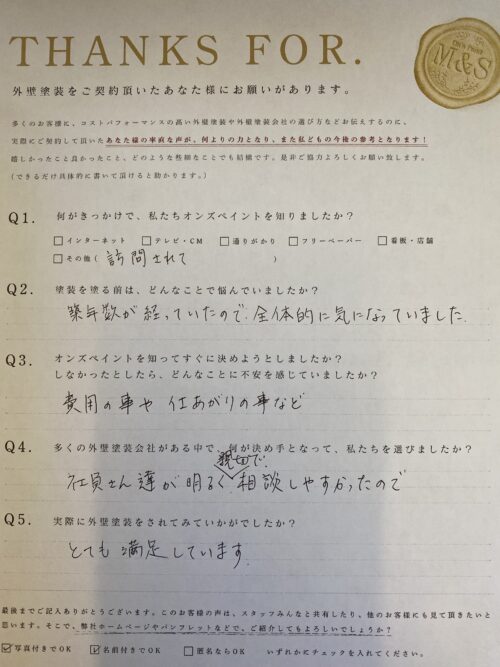 THANKS FOR.
M&S
外壁塗装をご契約頂いたあなた様にお願いがあります。
多くのお客様に、コストパフォーマンスの高い外壁塗装や外壁塗装会社の選び方などお伝えするのに、
実際にご契約して頂いたあなた様の率直な声が、何よりの力となり、また私どもの今後の参考となります！
嬉しかったこと良かったこと、どのような些細なことでも結構です。是非ご協力よろしくお願い致します。
（できるだけ具体的に書いて頂けると助かります。）
Q1. 何がきっかけで、私たちオンズペイントを知りましたか？
□インターネット □テレビ・CM □通りがかり □フリーペーパー □看板・店舗
□その他（訪問されて ）
Q2. 塗装を塗る前は、どんなことで悩んでいましたか？
築年数が経っていたので、全体的に気になっていました.
Q3. オンズペイントを知ってすぐに決めようとしましたか？
しなかったとしたら、どんなことに不安を感じていましたか？
費用の事や 仕あがりの事など
Q4. 多くの外壁塗装会社がある中で、何が決め手となって、私たちを選びましたか？
親切で、
社員さん達が明るく 相談しやすかったので
Q5. 実際に外壁塗装をされてみていかがでしたか？
とても満足しています.
最後までご記入ありがとうございます。このお客様の声は、スタッフみんなと共有したり、他のお客様にも見て頂きたいと
思います。そこで、弊社ホームページやパンフレットなどで、ご紹介してもよろしいでしょうか？
☑写真付きでOK ☑名前付きでOK □匿名ならOK いずれかにチェックを入れてください。